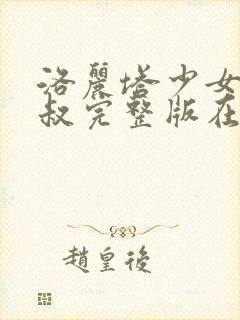 洛麗塔少女
叔完整版在
趙皇後